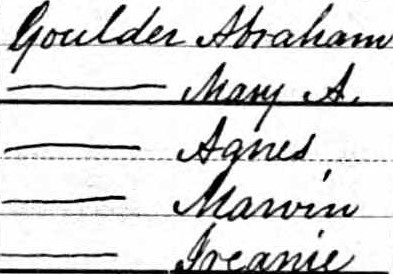 Goulder Abraham
—— Mary A.
—— Agnes
—— Marvin
—— Ireanie